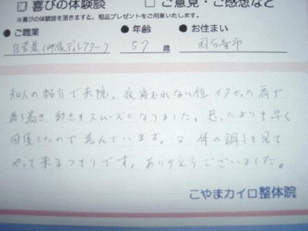 喜びの体験談 □ ご意見・ご感想など
※喜びの体験談を頂きますと、粗品プレゼントをご用意いたします。
●ご職業 ●年齢 ●お住まい
自営業(映像ディレクター) 57歳 国分寺市
知人の紹介で来院。夜眠れない位 イタかった肩が
動きもスムーズになりました。思ったよりも早く
回復したので喜んでいます。又 体の調子を見て
やって来るつもりです。ありがとうございました。
こやまカイロ整体院